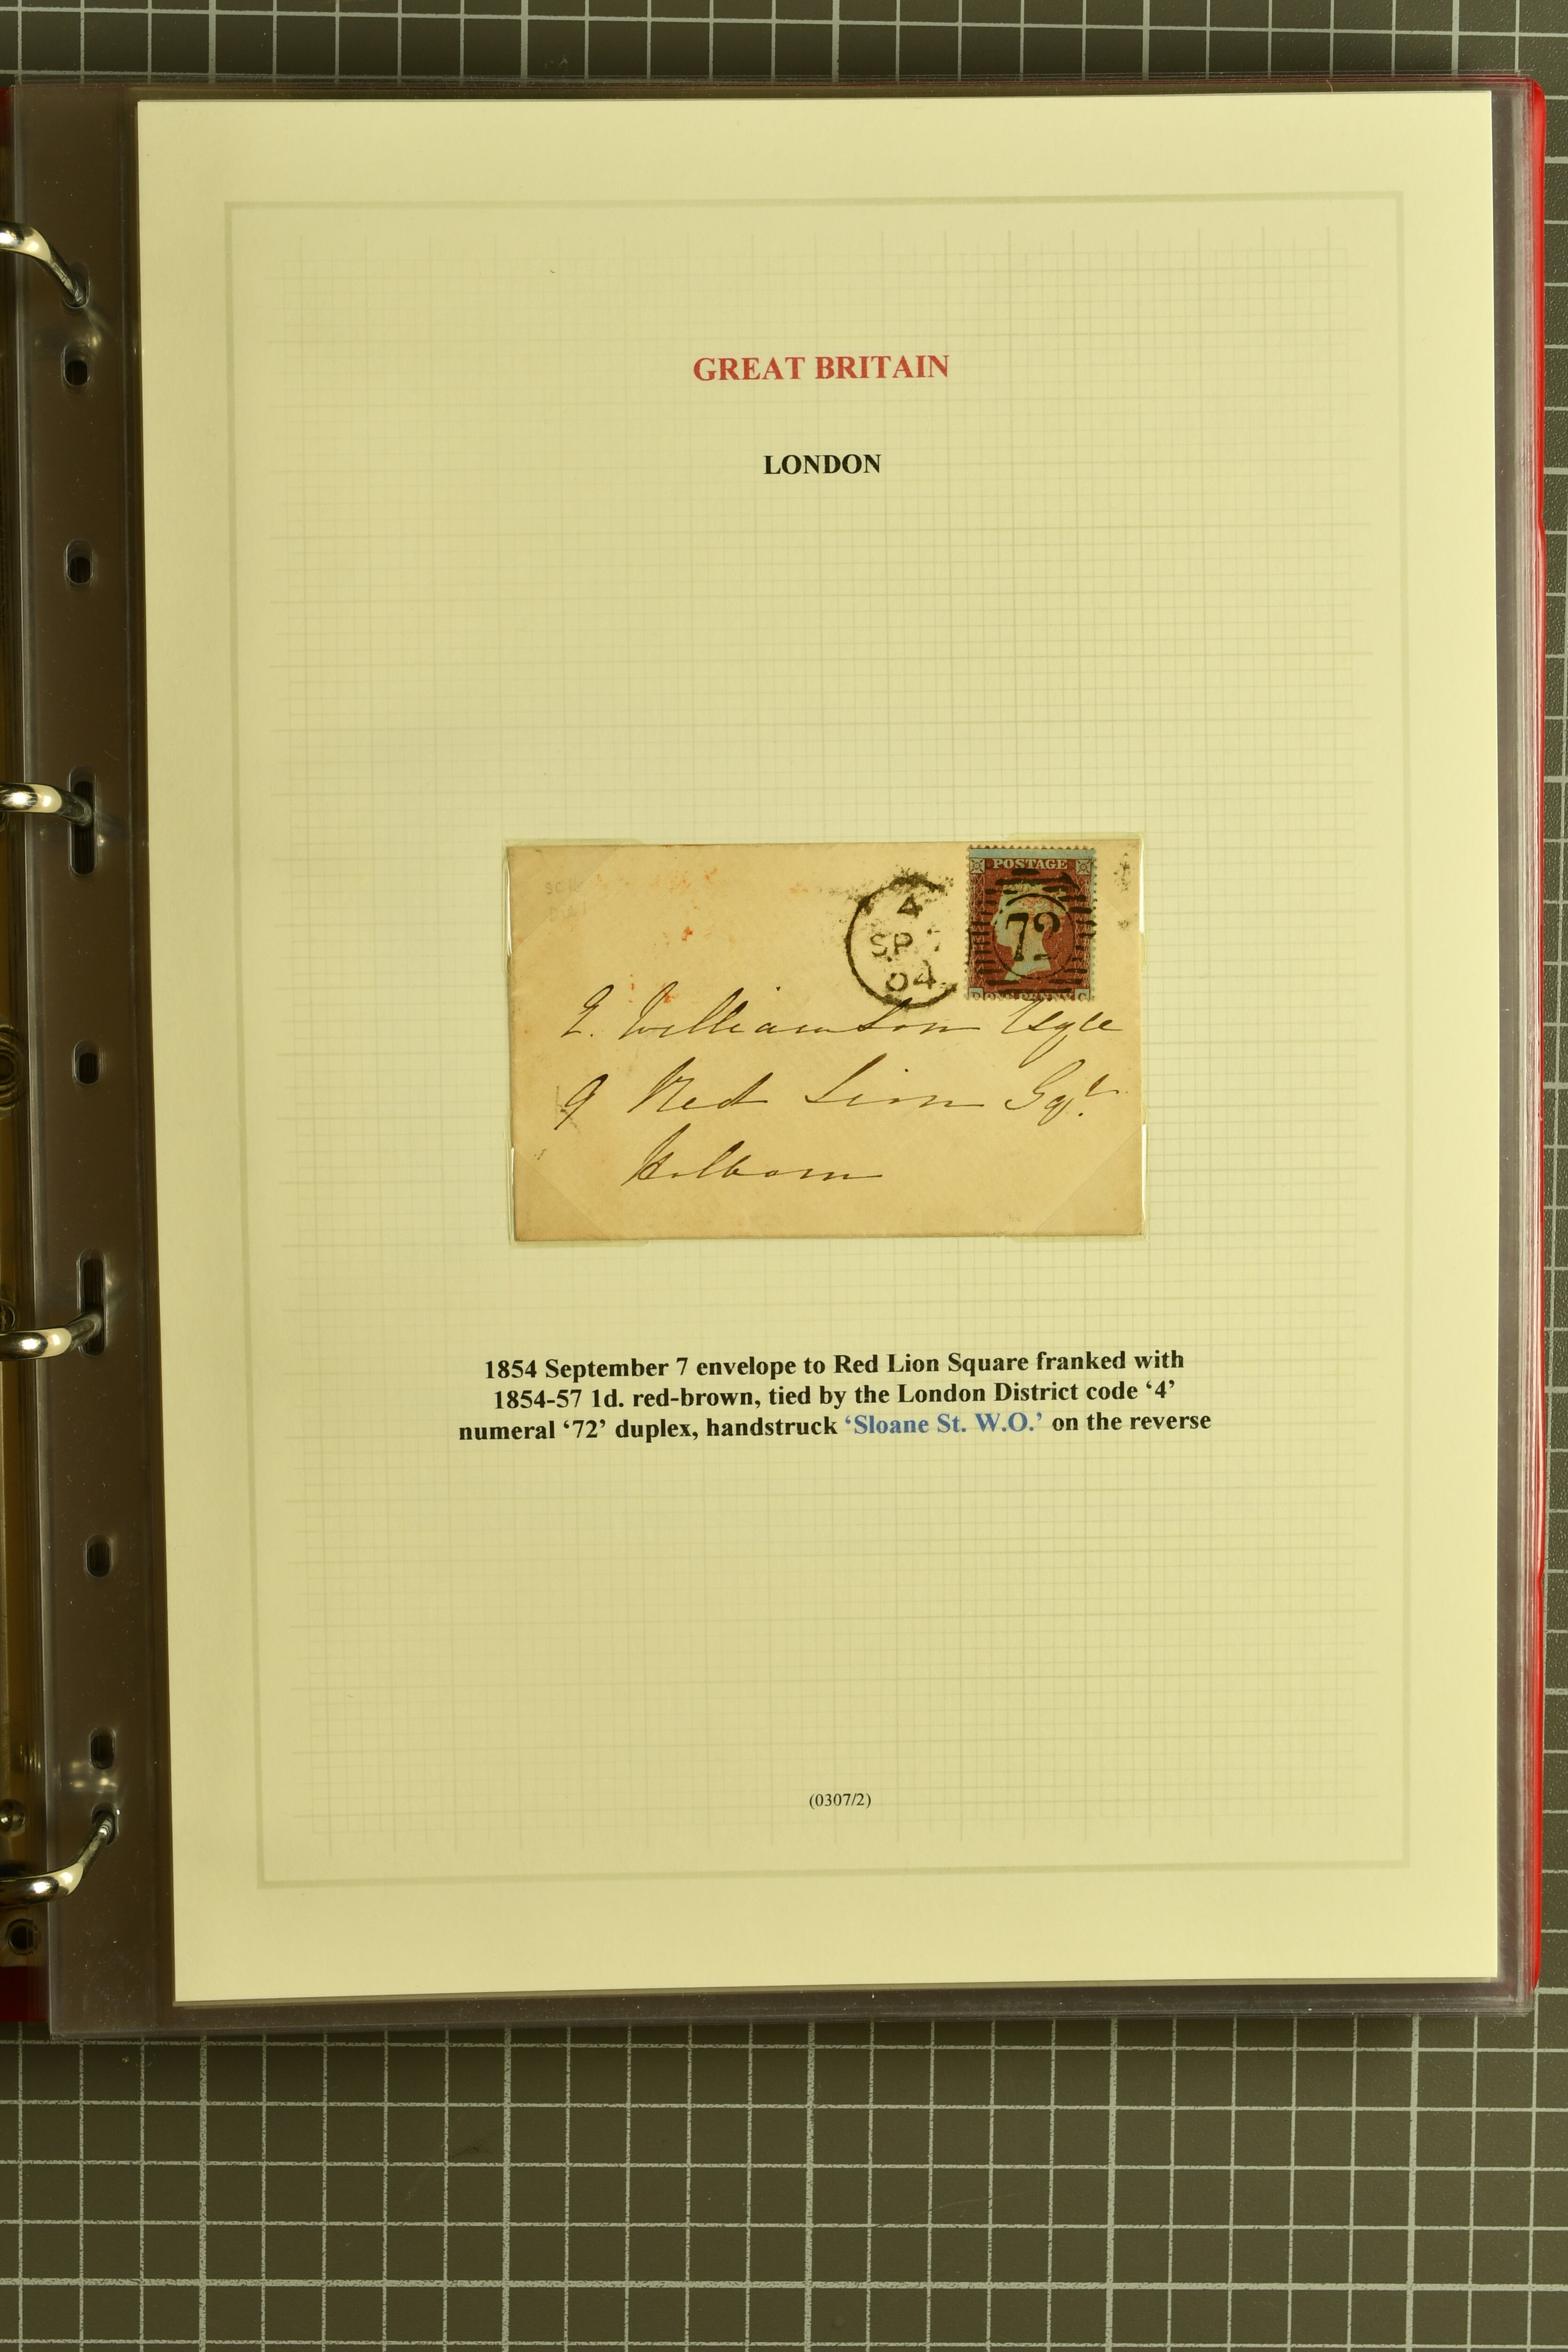 GREAT BRITAIN
LONDON
POSTAGE
4
SP
72
ONE PENNY
Williamson Esqre
9 Red Lion Sqr.
Holborn
1854 September 7 envelope to Red Lion Square franked with
1854-57 1d. red-brown, tied by the London District code ‘4’
numeral ‘72’ duplex, handstruck ‘Sloane St. W.O.’ on the reverse
(0307/2)